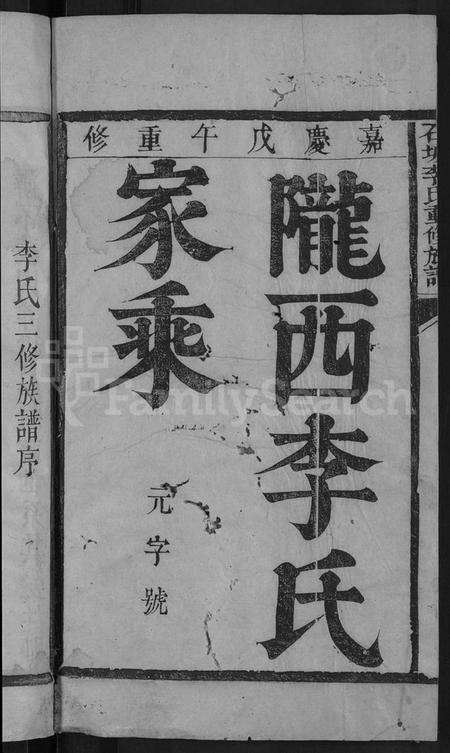 石城李氏重修族譜
嘉慶戊午重修
隴西李氏
家乘
元字號
李氏三修族譜序
FamilySearch